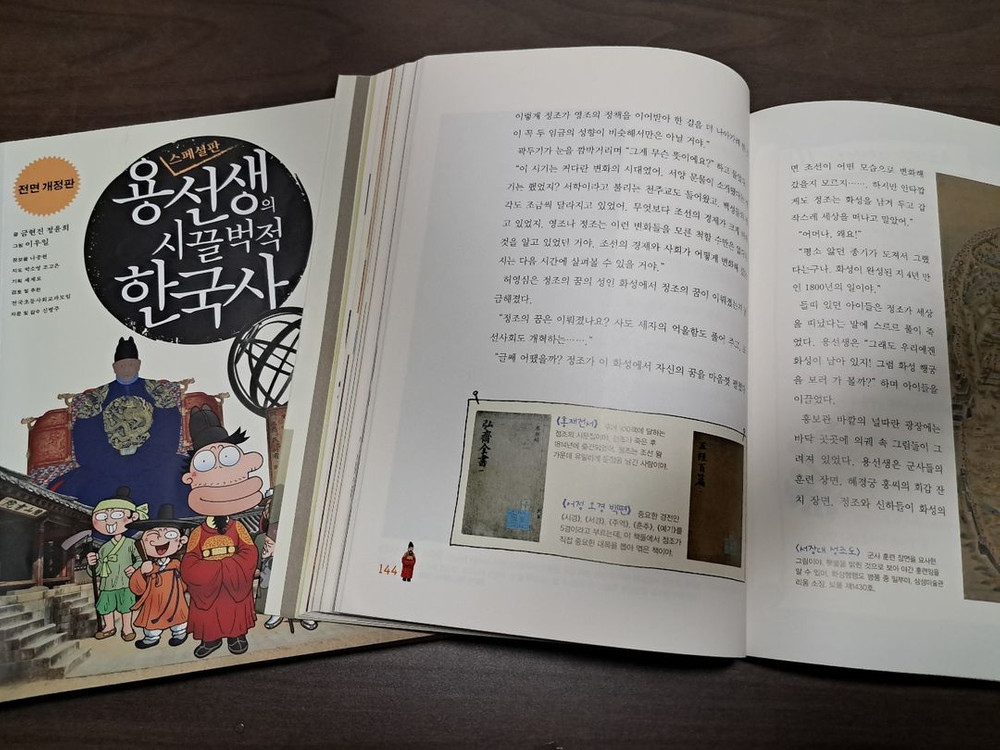 전면 개정판
스페셜판
용선생의
시끌벅적
한국사
글 금현진 정윤희
그림 이우일
정보물 나종현
지도 박소영 조고은
기획 세계로
검토 및 추천
전국초등사회교과모임
자문 및 감수 신병주
이렇게 정조가 영조의 정책을 이어받아 한 걸음 더 나아가려
이 꼭 두 임금의 성향이 비슷해서만은 아닐 거야."
곽두기가 눈을 깜박거리며 "그게 무슨 뜻이에요?" 하고 물었다
"이 시기는 커다란 변화의 시대였어. 서양 문물이 소개됐다
기는 했었지? 서학이라고 불리는 천주교도 들어왔고, 백성들의
각도 조금씩 달라지고 있었어. 무엇보다 조선의 경제가 크게
고 있었지. 영조나 정조는 이런 변화들을 모른 척할 수만은 없다
것을 알고 있었던 거야. 조선의 경제와 사회가 어떻게 변화해
지는 다음 시간에 살펴볼 수 있을 거야."
허영심은 정조의 꿈의 성인 화성에서 정조의 꿈이 이뤄졌는지
금해졌다.
"정조의 꿈은 이뤄졌나요? 사도 세자의 억울함도 풀어 주고,
선사회도 개혁하는……."
"글쎄 어땠을까? 정조가 이 화성에서 자신의 꿈을 마음껏
弘齋全書 一
《홍재전서》
정조의 시문집이야. 정조가 죽은 후
1814년에 출간되었어. 정조는 조선 왕
가운데 유일하게 문집을 남긴 사람이야.
《어정 오경 백편》 중요한 경전인
《시경》, 《서경》, 《주역》, 《춘추》, 《예기》를
5경이라고 부르는데, 이 책들에서 정조가
직접 중요한 대목을 뽑아 엮은 책이야.
五經百篇
144
면 조선이 어떤 모습으로 변화해
갔을지 모르지……. 하지만 안타깝
게도 정조는 화성을 남겨 두고 갑
작스레 세상을 떠나고 말았어."
"어머나, 왜요!"
"평소 앓던 종기가 도져서 그랬
다는구나. 화성이 완성된 지 4년 만
인 1800년의 일이야."
들떠 있던 아이들은 정조가 세상
을 떠났다는 말에 스르르 풀이 죽
었다. 용선생은 "그래도 우리에겐
화성이 남아 있지! 그럼 화성 행궁
을 보러 가 볼까?" 하며 아이들을
이끌었다.
홍보관 바깥의 널따란 광장에는
바닥 곳곳에 의궤 속 그림들이 그
려져 있었다. 용선생은 군사들의
훈련 장면, 혜경궁 홍씨의 회갑 잔
치 장면, 정조와 신하들이 화성의
《서장대 성조도》 군사 훈련 장면을 묘사한
그림이야. 횃불을 밝힌 것으로 보아 야간 훈련임을
알 수 있어. 화성행행도 병풍 중 일부야. 삼성미술관
리움 소장. 보물 제1430호.